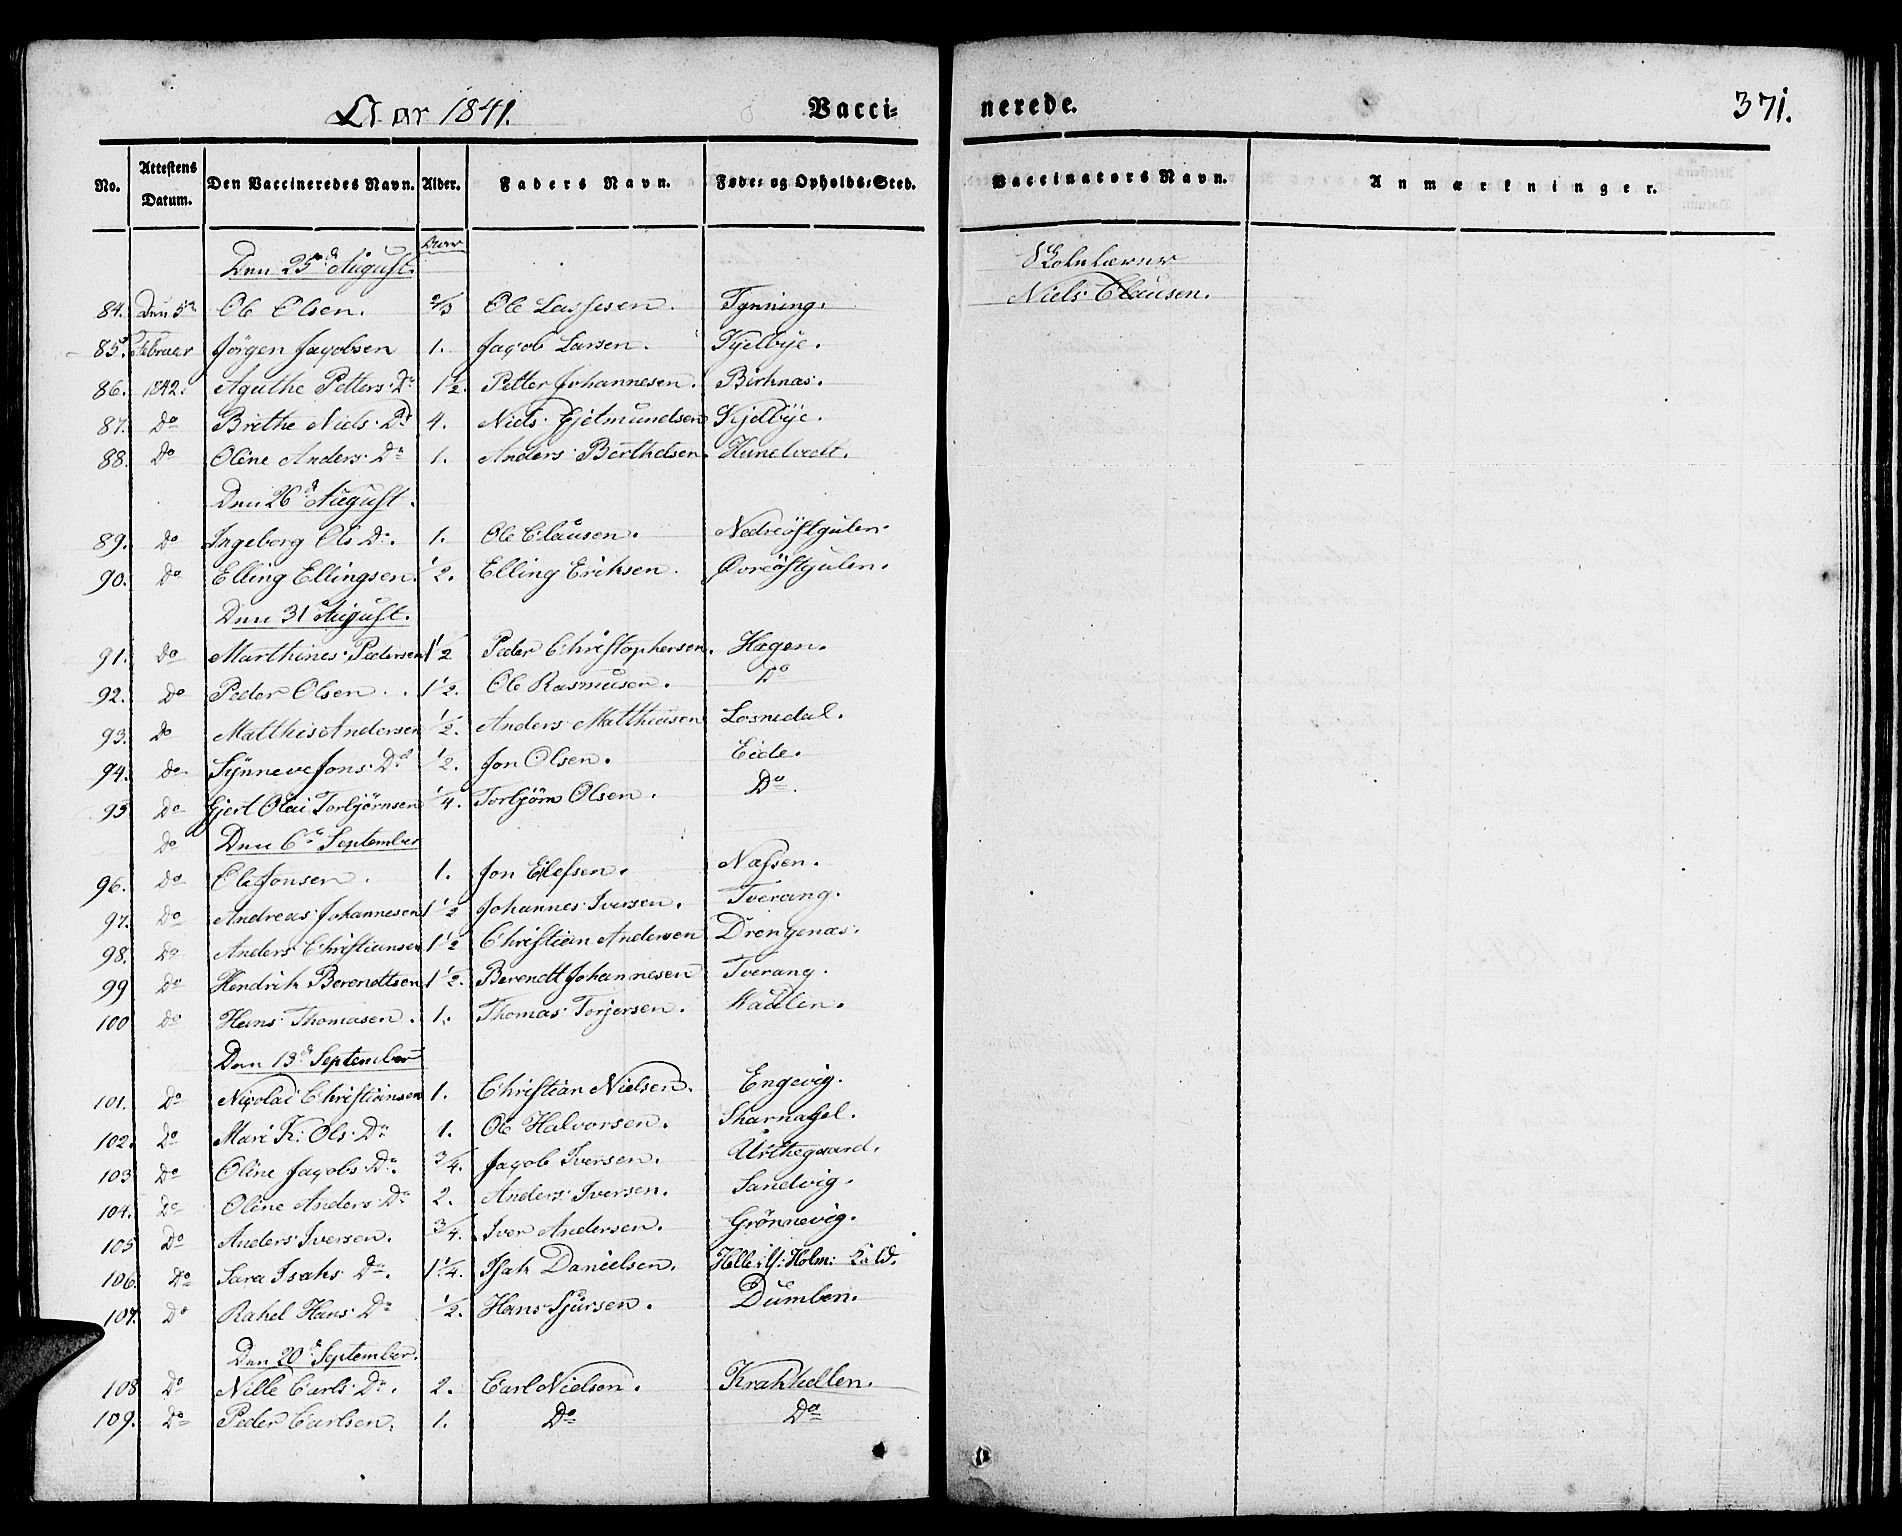 Aar 1841. Vacci= nerede. 371.
No. Attestens Datum. Den Vaccineredes Navn. Alder. Faders Navn. Føde= og Opholds=Sted. Vaccinators Navn. Anmærkninger.
Aar
Den 25de August. Skolelærer
84. Den 5te Ole Olsen. 2/3 Ole Lassesen. Tynning. Niels Clausen.
85. Februar Jörgen Jacobsen 1. Jacob Larsen. Kjelbye.
86. 1842. Agathe Petters Dr 1 1/2. Petter Johannesen. Birknas.
87. Do Brithe Niels Dr 4. Niels Gjetmundsen Kjelbye.
88. Do Oline Anders Dr 1. Anders Berthelsen. Hunelvedt.
Den 26de August.
89. Do Ingeborg Ols Dr. 1. Ole Clausen. Nedreöstgulen.
90. Do Elling Ellingsen. 1/2. Elling Eriksen. Övreöstgulen.
Den 31 August.
91. Do Marthines Pedersen 1 1/2 Peder Christophersen. Hagen.
92. Do Peder Olsen. 1 1/2. Ole Rasmusen. Do
93. Do Matthis Andersen 1/2. Anders Matthiasen Losnedal.
94. Do Synneve Jons Dr 1/2. Jon Olsen. Eide.
95 Do Gjert Olai Torbjörnsen 1/4. Torbjörn Olsen. Do.
Do Den 6te September
96. Do Ole Jonsen. 1. Jon Elefsen. Nassen.
97. Do Andreas Johannesen 1 1/2 Johannes Iversen. Tverang.
98. Do Anders Christiansen 1 1/2 Christian Andersen Drengenæs.
99 Do Hendrik Berendtsen 1 1/2. Berendt Johannesen Tverang.
100 Do Hans Thomasen. 1. Thomas Torjersen. Kaalen.
Den 13de September
101. Do Nicolai Christiansen 1. Christian Nielsen. Engevig.
102. Do Mari K: Ols Dr 1. Ole Halvorsen. Skarnagel.
103 Do Oline Jacobs Dr. 3/4. Jacob Iversen. Urthegaard.
104. Do Oline Anders Dr 2. Anders Iversen. Sandvig.
105 Do Anders Iversen. 3/4. Iver Andersen. Grönnevig.
106. Do Sara Isaks Dr. 1 1/4. Isak Danielsen. Helle i Y: Holm:
107. Do Rakel Hans Dr 1/2. Hans Sjursen. Dumben.
Den 20de September.
108 Do Nille Carls Dr. 2. Carl Nielsen. Krakhellen.
109. Do Peder Carlsen. 1. Do Do